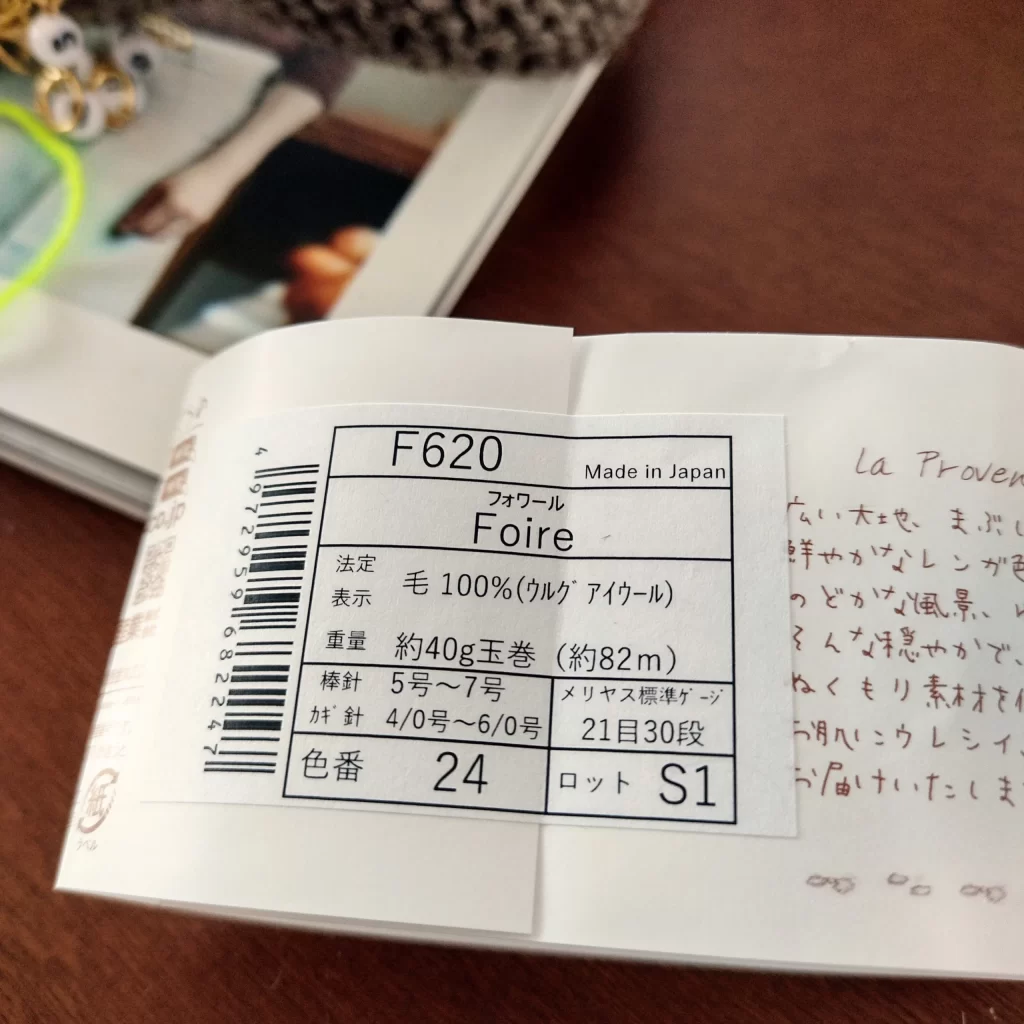 F620
Made in Japan
フォワール
Foire
法定
表示
毛 100%(ｳﾙｸﾞｱｲウール)
重量 約40g玉巻 (約82m)
棒針 5号～7号
ｶｷﾞ針 4/0号～6/0号
メリヤス標準ｹﾞｰｼﾞ
21目30段
色番 24
ロット S1
4 972959 682247
La Proven
広い大地、まぶし
鮮やかなレンガ色
のどかな風景、
そんな穏やかで、
ぬくもり素材を
お肌にウレシイ
お届けいたしま
紙
ラベル